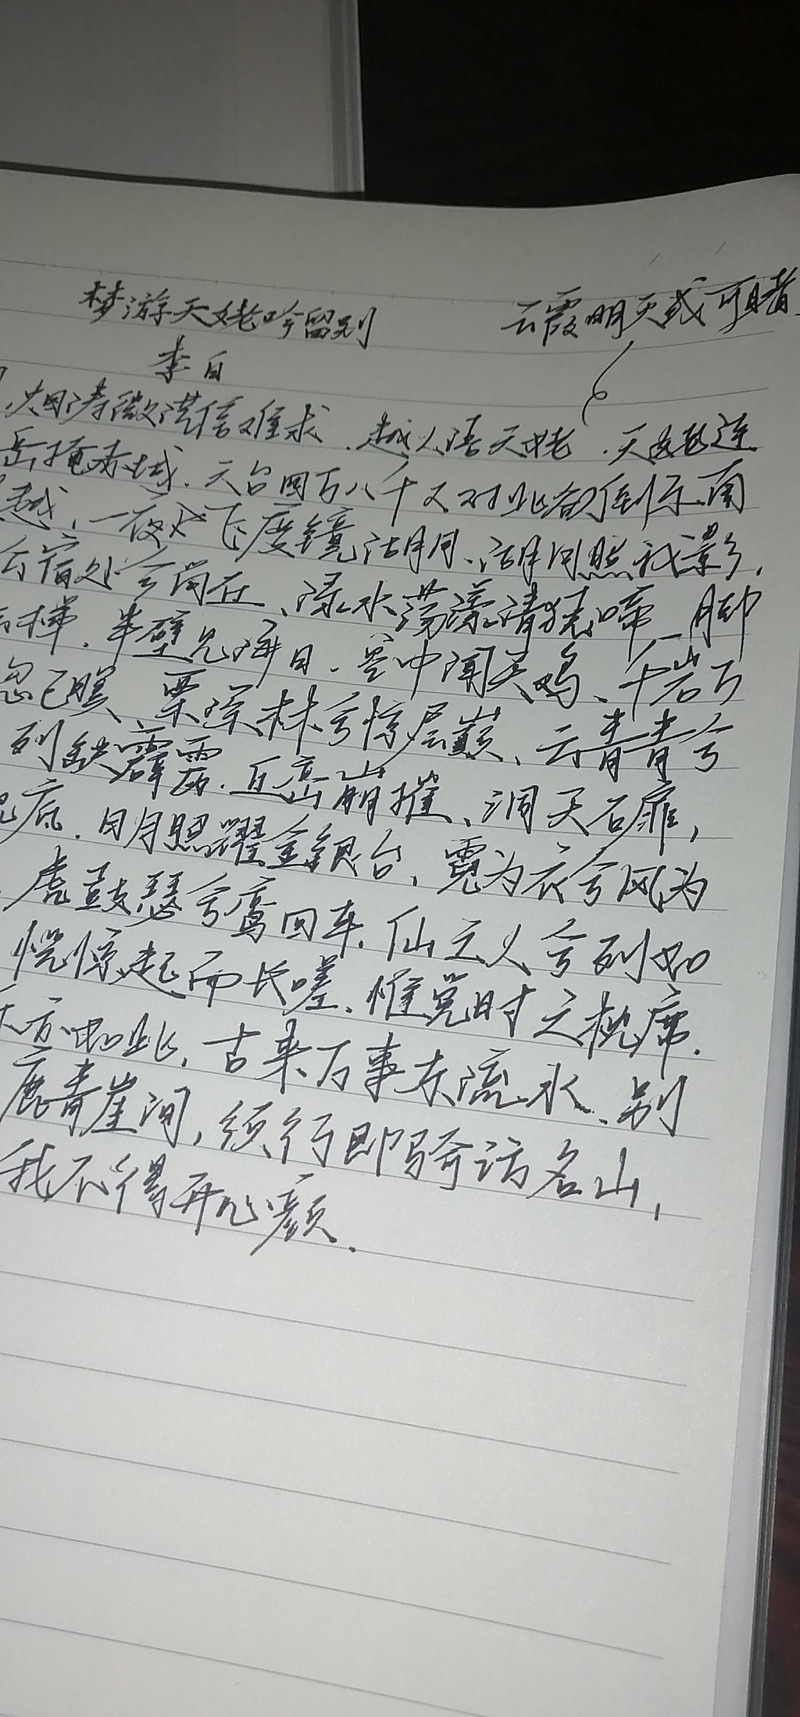 梦游天姥吟留别
云霞明灭或可睹
李白
烟涛微茫信难求.越人语天姥.天姥连
岳掩赤城.天台四万八千丈对此欲倒东南
越,一夜飞度镜湖月、湖月照我影,
宿处兮尚在、渌水荡漾清猿啼、脚
梯.半壁见海日.空中闻天鸡、千岩万
忽已暝、栗深林兮惊层巅、云青青兮
列缺霹雳.丘峦崩摧、洞天石扉,
底.日月照耀金银台、霓为衣兮风为
虎鼓瑟兮鸾回车.仙之人兮列如
恍惊起而长嗟.惟觉时之枕席.
亦如此.古来万事东流水、别
鹿青崖间,须行即骑访名山,
我不得开心颜.